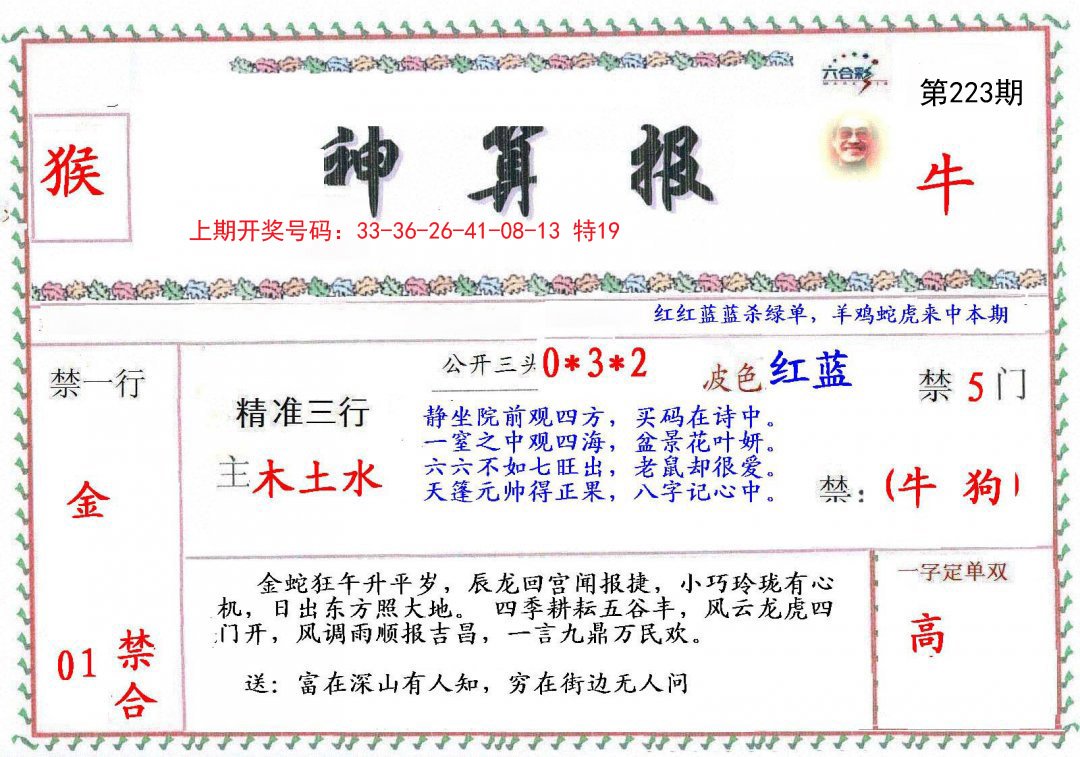 六合彩
第223期
猴
神算报
牛
上期开奖号码：33-36-26-41-08-13 特19
红红蓝蓝杀绿单，羊鸡蛇虎来中本期
禁一行
公开三头0*3*2
波色 红蓝
禁 5 门
精准三行
主木土水
静坐院前观四方，买码在诗中。
一窒之中观四海，盆景花叶妍。
六六不如七旺出，老鼠却很爱。
天篷元帅得正果，八字记心中。
禁：(牛 狗)
金
01 禁合
金蛇狂午升平岁，辰龙回宫闻报捷，小巧玲珑有心
机，日出东方照大地。 四季耕耘五谷丰，风云龙虎四
门开，风调雨顺报吉昌，一言九鼎万民欢。
送：富在深山有人知，穷在街边无人问
一字定单双
高